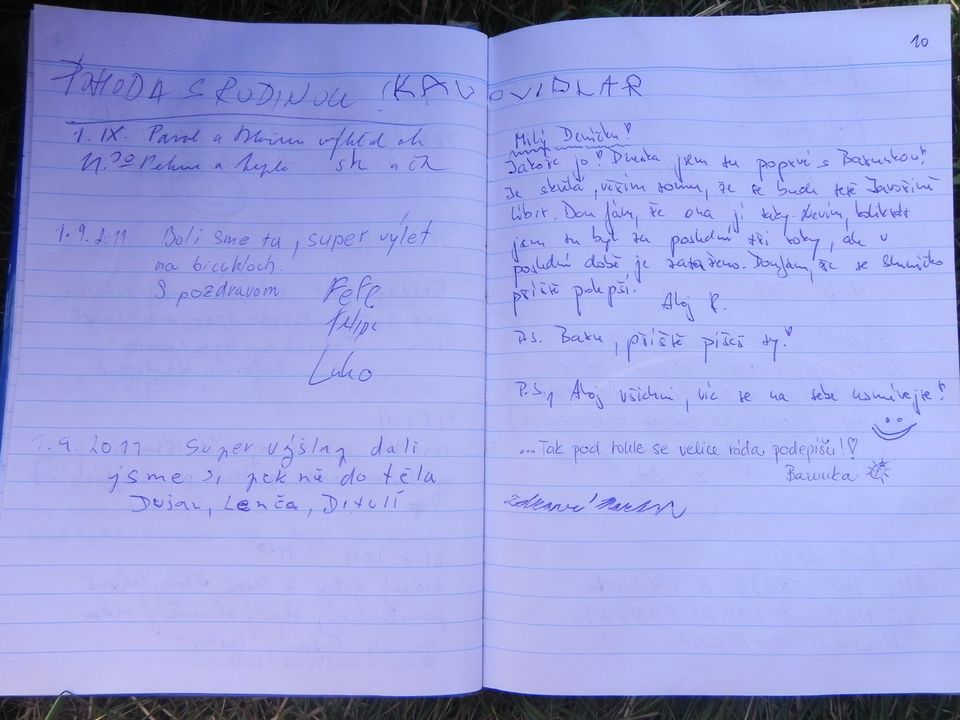 POHODA S RODINOU
1. IX. Pavol a výhled ok
11.30 a SK a ČR
1.9.2011 Boli sme tu, super výlet
na bicykloch.
S pozdravom Fefe
Filipe
Luko
1.9.2011 Super výšlap dali
jsme si pěkně do těla
Dujan, Lenča, Ditulí
10
Milý Deníčku!
Jakože jo! Dneska jsem tu poprvé s Barunkou!
Je skvělá, věřím tomu, že se bude ještě Javořině
líbit. Doufám, že ona jí taky. Nevím, kolikrát
jsem tu byl za poslední tři roky, ale v
poslední době je zataženo. Doufám, že se sluníčko
příště polepší. Ahoj P.
P.S. Baru, příště píšeš ty!
P.S., Ahoj všichni, víc se na sebe usmívejte!
...Tak pod tohle se velice ráda podepíšu!
Barunka
zdraví